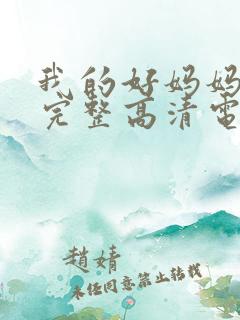 我的好妈妈
完整高清电
趙婧
未经同意禁止转载